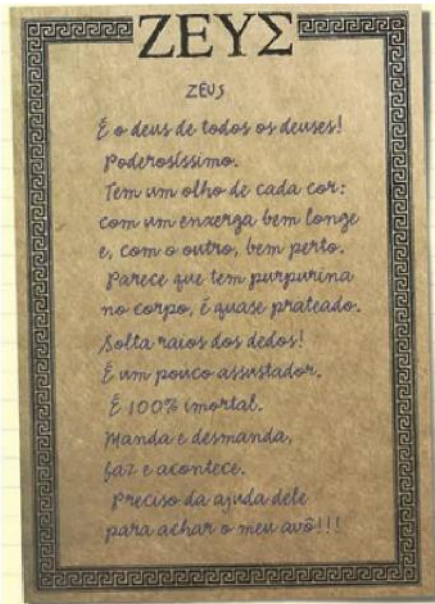 ΖΕΥΣ
ZEUS
É o deus de todos os deuses!
Poderosíssimo.
Tem um olho de cada cor:
com um enxerga bem longe
e, com o outro, bem perto.
Parece que tem purpurina
no corpo, é quase prateado.
Solta raios dos dedos!
É um pouco assustador.
É 100% imortal.
Manda e desmanda,
faz e acontece.
Preciso da ajuda dele
para achar o meu avô!!!